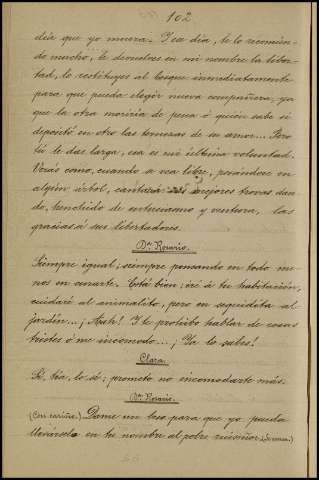 102
día que yo muera. Ese día, te lo recomien-
do mucho, le devuelves en mi nombre la liber-
tad, lo restituyes al bosque inmediatamente
para que pueda elegir nueva compañera, ya
que la otra moriría de pena ó quién sabe si
depositó en otro las ternuras de su amor... Pero
tú le das larga, esa es mi última voluntad.
Verás como, cuando se vea libre, posándose en
algún árbol, cantará mejores trovas dan-
do, henchido de entusiasmo y ventura, las
gracias á sus libertadores.
Dª. Rosario.
Siempre igual, siempre pensando en todo me-
nos en curarte. Está bien; iré á tu habitación,
cuidaré al animalito, pero en seguidita al
jardín... ¡Aah! Y te prohibo hablar de cosas
tristes ó me incomodo... ¡Ya lo sabes!
Clara.
Sí, tía, lo sé; prometo no incomodarte más.
Dª. Rosario.
(Con cariño.) Dame un beso para que yo pueda
llevárselo en tu nombre al pobre ruiseñor. (Se besan.)